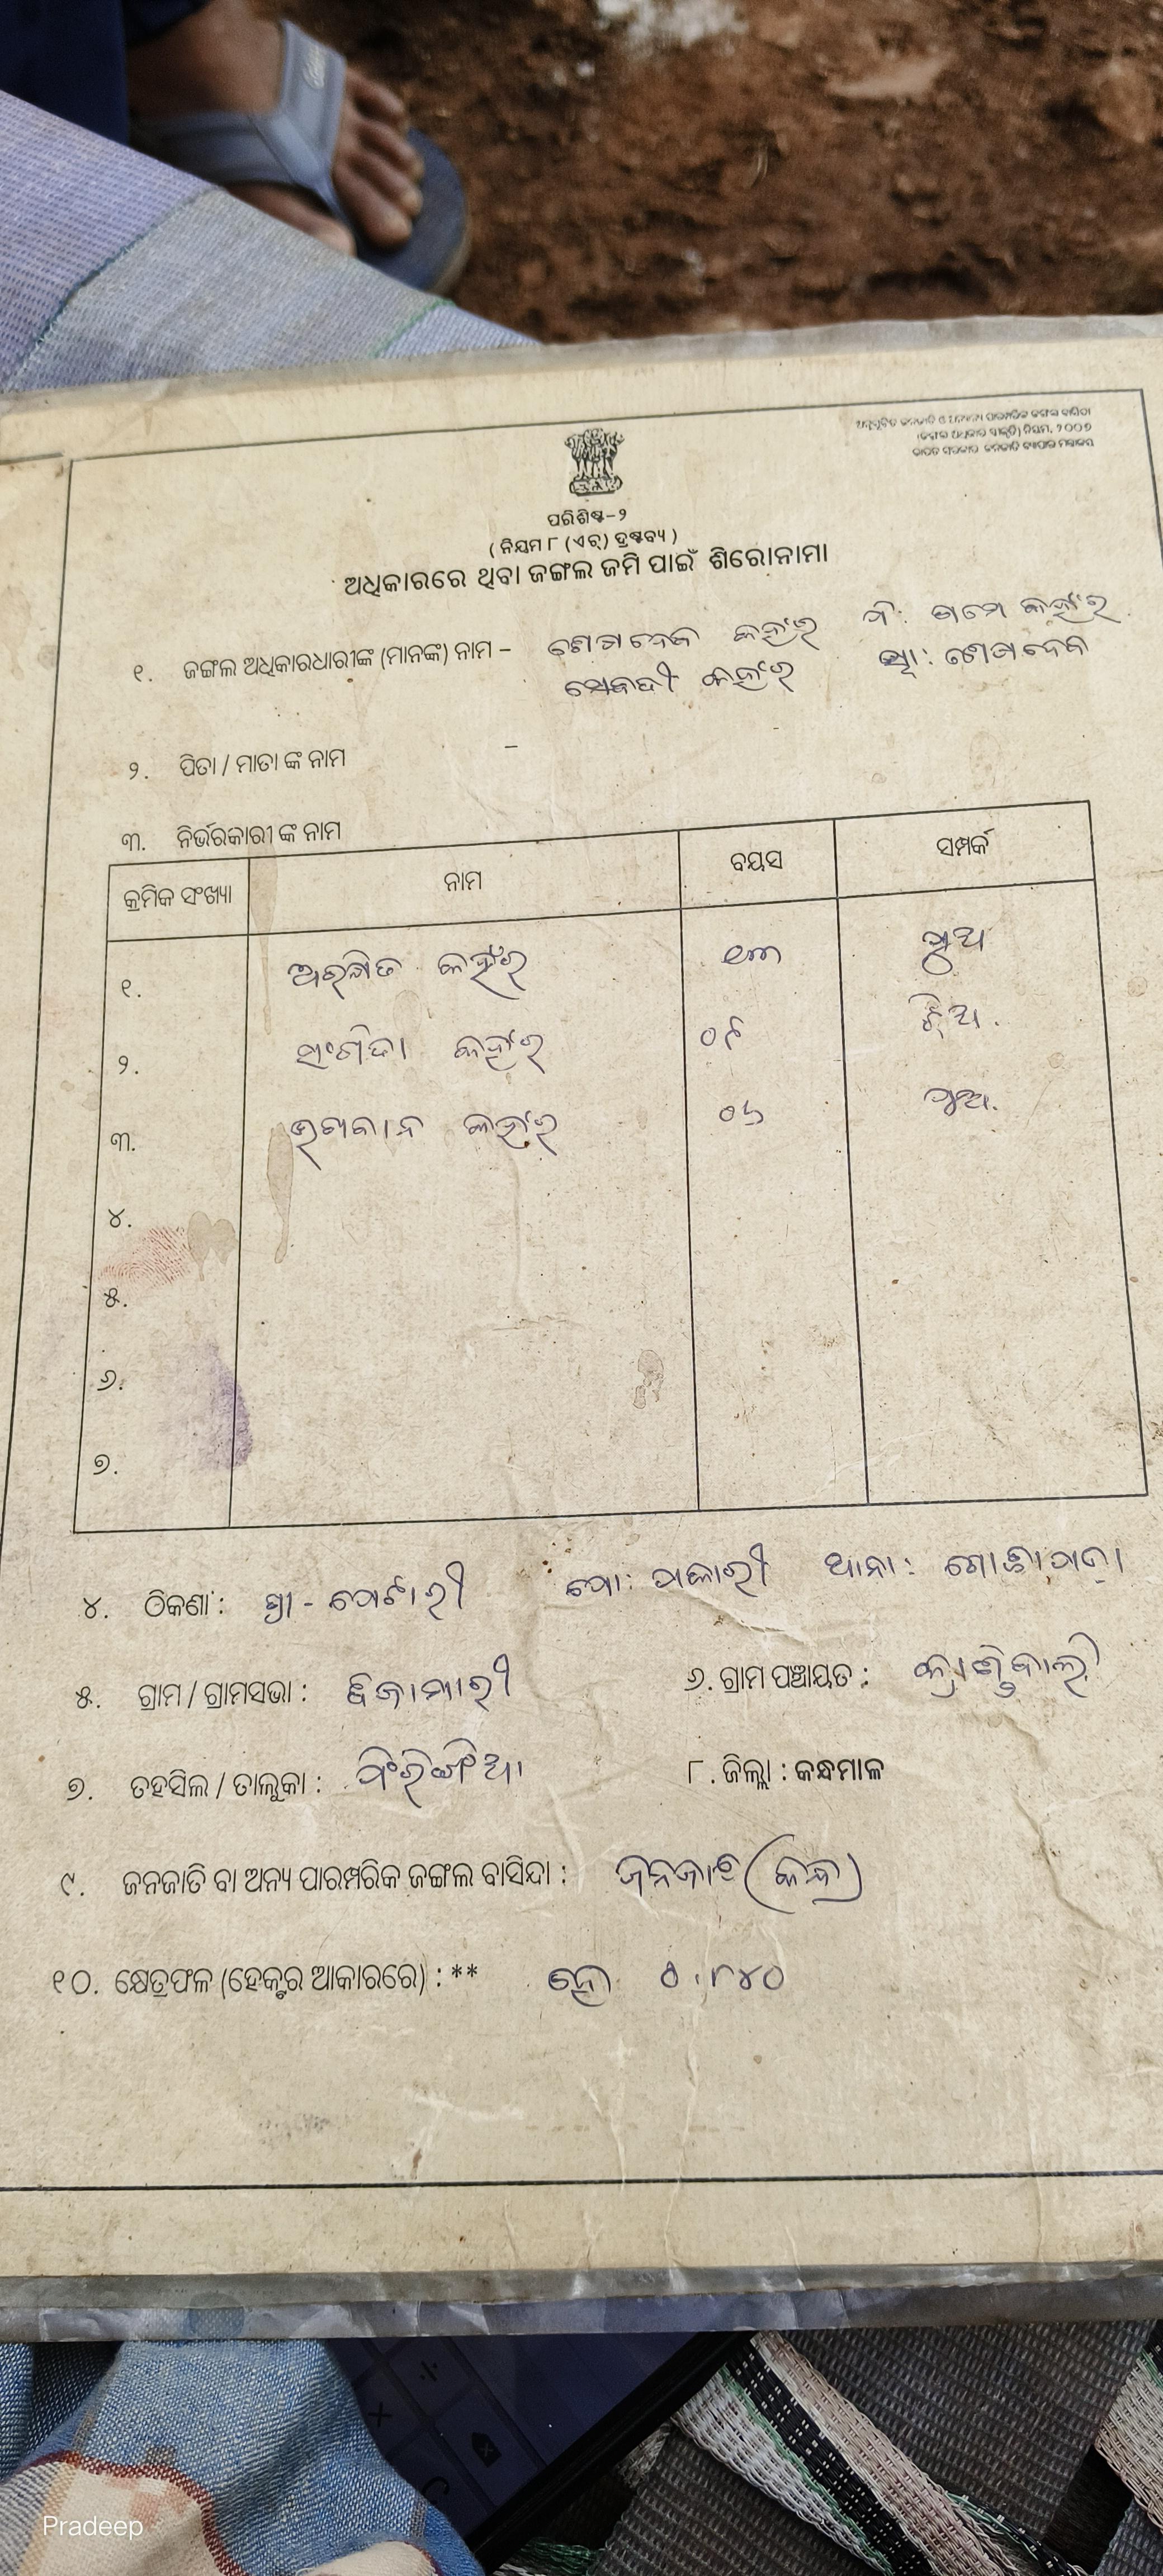 ଅନୁସୂଚିତ ଜନଜାତି ଓ ପାରମ୍ପରିକ ଜଙ୍ଗଲ ବାସିନ୍ଦା
(ଜଙ୍ଗଲ ଅଧିକାର ସ୍ୱୀକୃତି) ନିୟମ, ୨୦୦୭
ଭାରତ ସରକାର ଜନଜାତି ବ୍ୟାପାର ମନ୍ତ୍ରାଳୟ
ପରିଶିଷ୍ଟ-୨
( ନିୟମ ୮ (ଏର୍) ଦ୍ରଷ୍ଟବ୍ୟ )
ଅଧିକାରରେ ଥିବା ଜଙ୍ଗଲ ଜମି ପାଇଁ ଶିରୋନାମା
୧. ଜଙ୍ଗଲ ଅଧିକାରଧାରୀଙ୍କ (ମାନଙ୍କ) ନାମ – କହଁର ପି: କହଁର
କହଁର ସ୍ୱା:
୨. ପିତା / ମାତା ଙ୍କ ନାମ –
୩. ନିର୍ଭରକାରୀ ଙ୍କ ନାମ
କ୍ରମିକ ସଂଖ୍ୟା ନାମ ବୟସ ସମ୍ପର୍କ
୧. ଅରକ୍ଷିତ କହଁର ୧୩ ପୁଅ
୨. କହଁର ୦୯ ଝିଅ.
୩. ଭଗବାନ କହଁର ୦୬ ପୁଅ.
୪.
୫.
୬.
୭.
୪. ଠିକଣା : ପୋ: ଥାନା:
୫. ଗ୍ରାମ / ଗ୍ରାମସଭା : ୬. ଗ୍ରାମ ପଞ୍ଚାୟତ :
୭. ତହସିଲ / ତାଲୁକା : ଫିରିଙ୍ଗିଆ ୮. ଜିଲ୍ଲା : କନ୍ଧମାଳ
୯. ଜନଜାତି ବା ଅନ୍ୟ ପାରମ୍ପରିକ ଜଙ୍ଗଲ ବାସିନ୍ଦା : ଜନଜାତି (କନ୍ଧ)
୧୦. କ୍ଷେତ୍ରଫଳ (ହେକ୍ଟର ଆକାରରେ) : ** ହେ ୦.୮୪୦
Pradeep